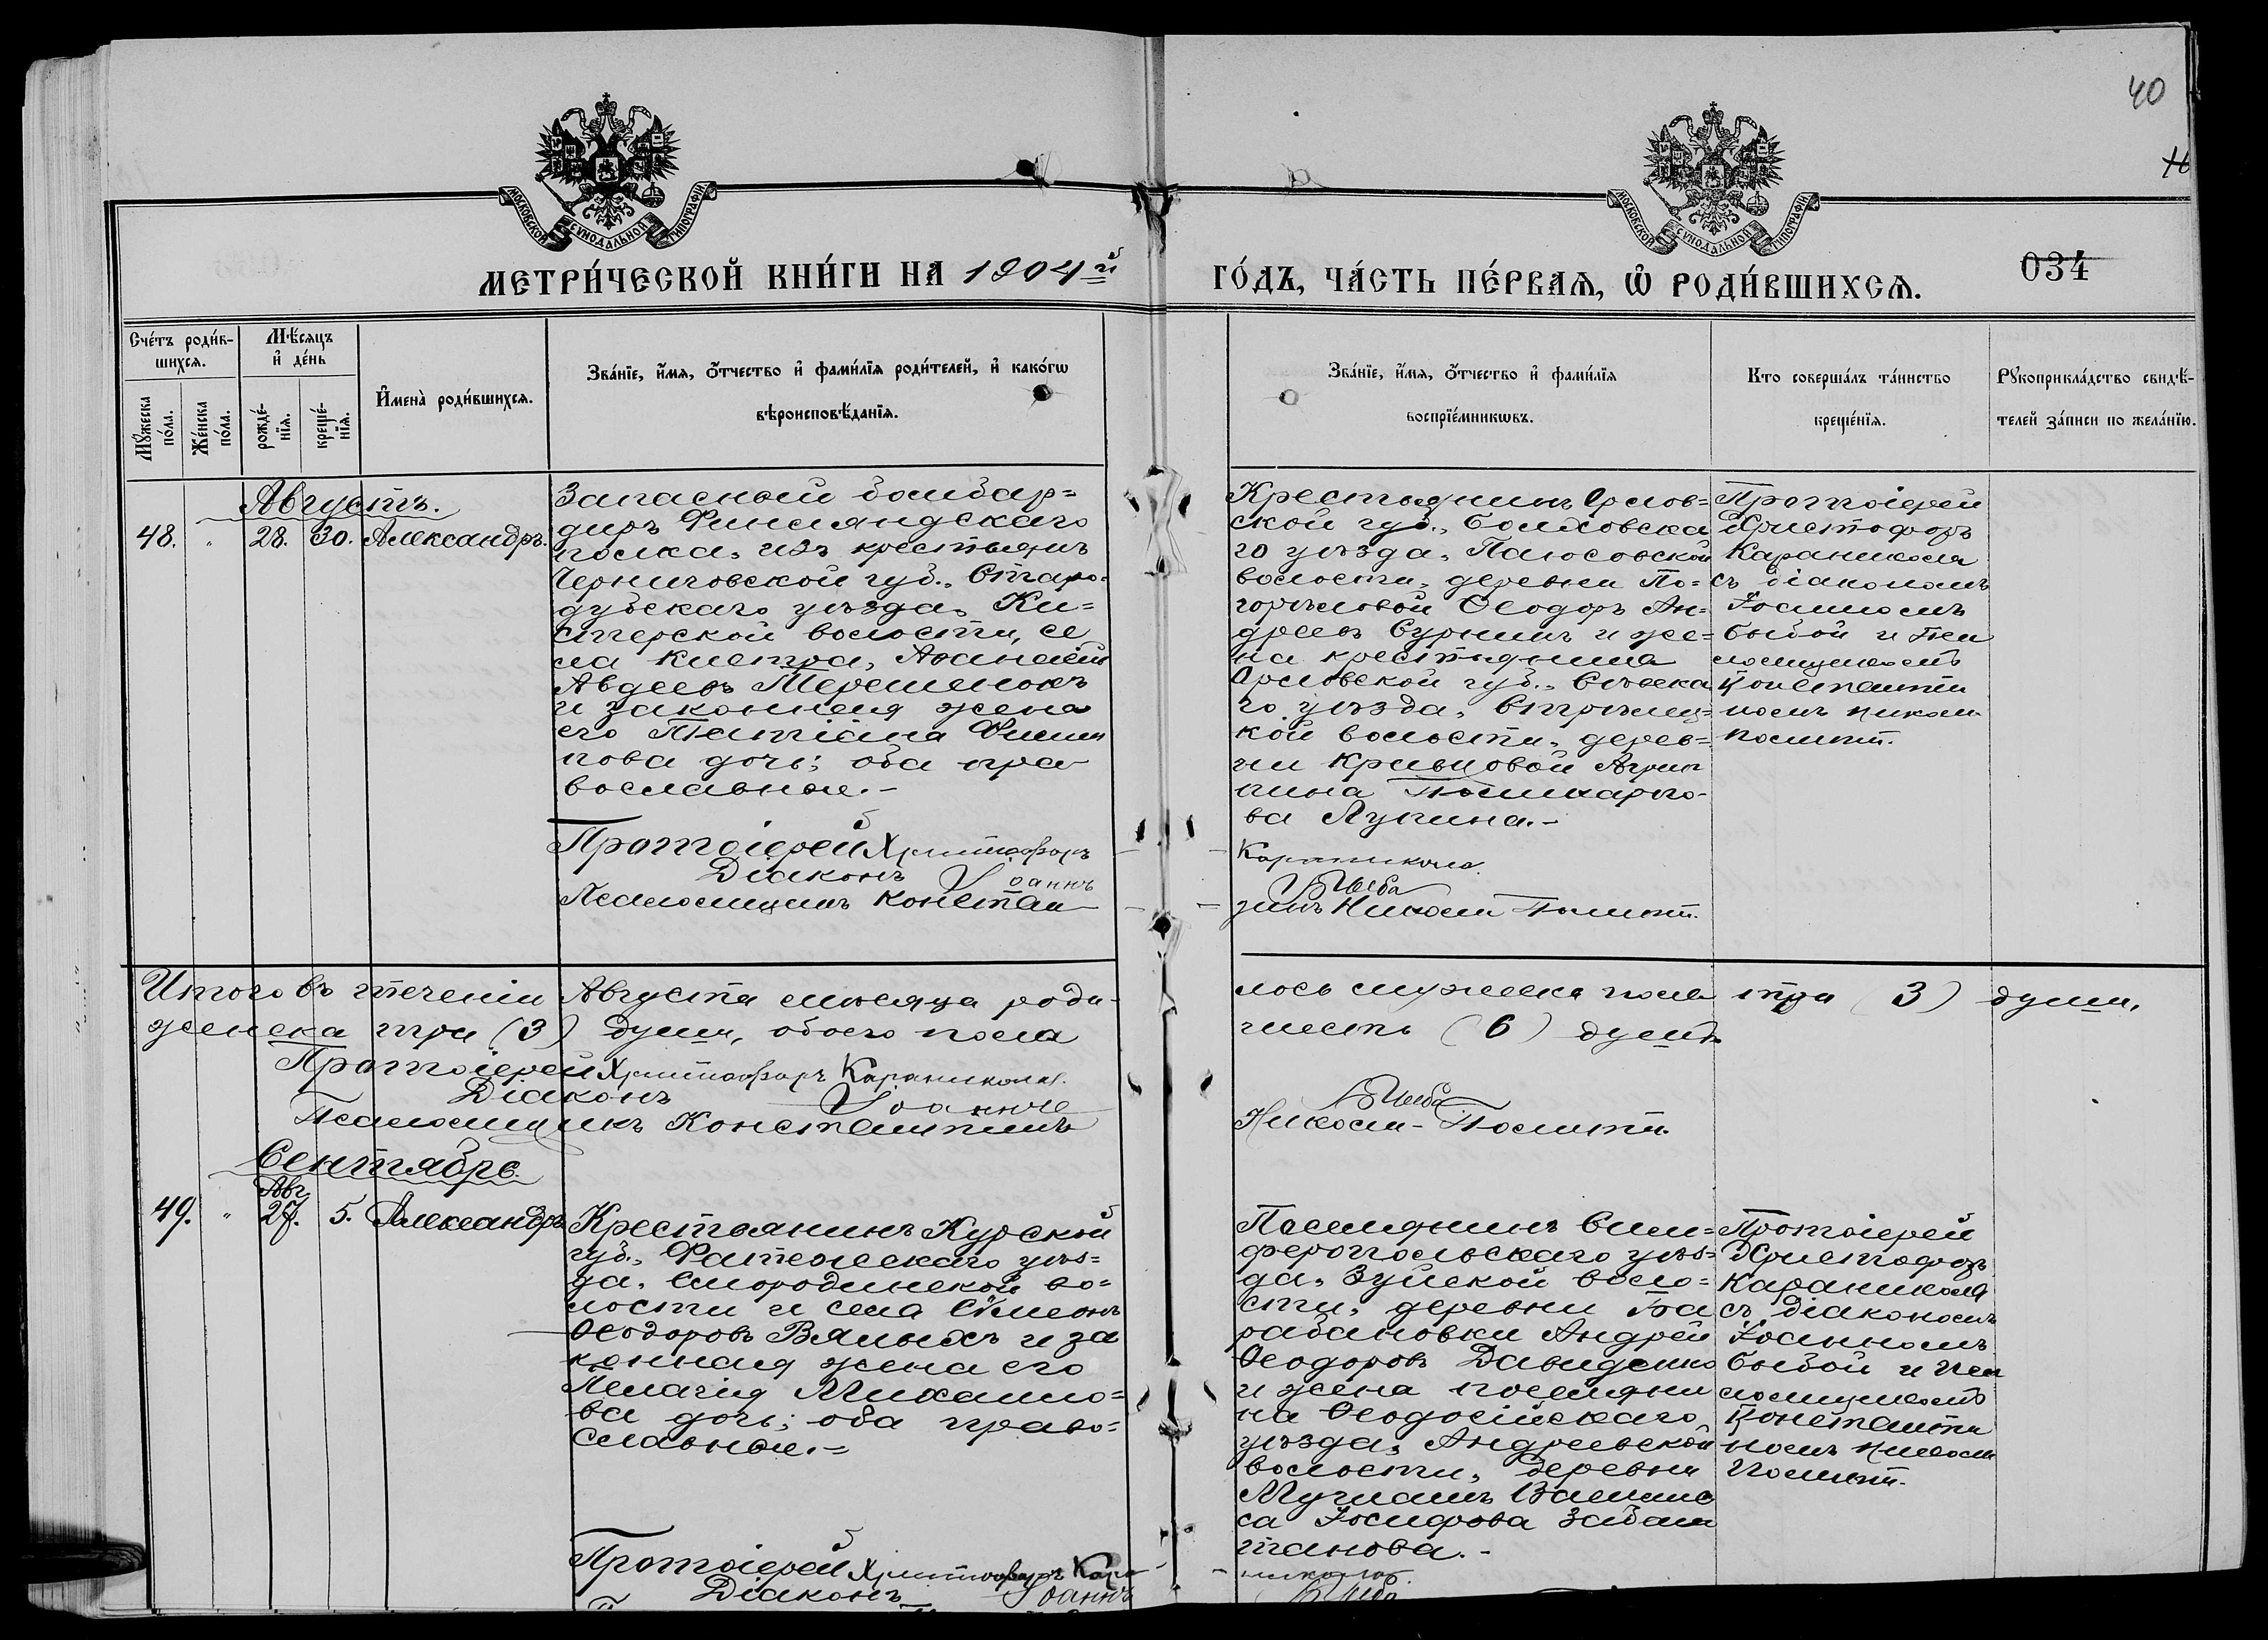 40
МОСКОВСКОЙ СУНОДАЛЬНОЙ ТИПОГРАФІИ
МОСКОВСКОЙ СУНОДАЛЬНОЙ ТИПОГРАФІИ
МЕТРИ́ЧЕСКОЙ КНИ́ГИ НА 1904й
ГО́ДЪ, ЧА́СТЬ ПЕ́РВАѦ, Ѡ҆ РОДИ́ВШИХСѦ.
034
Сче́тъ роди́в-
шихся.
Мѣ́сяцъ
и҆ де́нь
Мꙋ́жеска
по́ла.
Же́нска
по́ла.
рожде́-
нїя.
креще́-
нїя.
И҆мена̀ роди́вшихся.
Зва́нїе, и҆́мя, ѻ҆́тчество и҆ фами́лїя роди́телей, и҆ како́гѡ
вѣроисповѣ́данїя.
Зва́нїе, и҆́мя, ѻ҆́тчество и҆ фами́лїя
воспрїе́мникѡвъ.
Кто соверша́лъ та́инство
креще́нїя.
Рꙋкоприкла́дство свидѣ́-
телей за́писи по жела́нїю.
Августъ.
48. " 28. 30. Александръ.
Запасный бомбар=
диръ Финляндскаго
полка, изъ крестьянъ
Черниговской губ., Старо-
дубскаго уѣзда, Ки=
стерской волости, се
ла Кистра, Аѳанасій
Авдеевъ Терешенокъ
и законная жена
его Татіана Филип
пова дочь; оба пра
вославные.-
Протоіерей Христофоръ
Діаконъ Іоаннъ
Псаломщикъ Констан-
Крестьянинъ Орлов=
ской губ., Болховска
го уѣзда,
волости, деревни По=
горѣловой Ѳеодоръ Ан=
дреевъ Сурнинъ и же=
на крестьянина
Орловской губ., Сѣвска
го уѣзда, Стрѣлец=
кой волости, дерев=
ни Кривцовой Агрип
пина Поликарпо-
ва Лунина.-
Караникола.
Цыба
тинъ Николи-Политти.
Протоіерей
Христофоръ
Караникола
съ діакономъ
Іоанномъ
Цыбой и Пса
ломщикомъ
Константи
номъ Николи
Политти.
Итого въ теченіи Августа мѣсяца роди-
лось мужеска пола три (3) души,
женска три (3) души, обоего пола
шесть (6) душъ.
Протоіерей Христофоръ Караникола.
Діаконъ Іоаннъ
Цыба
Псаломщикъ Константинъ
Николи-Политти.
Сентябрь.
Авг.
49. " 27. 5. Александръ
Крестьянинъ Курской
губ., Фатежскаго уѣз=
да, Смородинской во=
лости и села Сѵмеонъ
Ѳеодоровъ Вялыхъ и за
конная жена его
Пелагія Михаило=
ва дочь; оба право=
славные.-
Протоіерей Христофоръ Кара-
Діаконъ Іоаннъ
Поселянинъ Сим=
феропольскаго уѣз=
да, Зуйской воло=
сти, деревни Ба
рабановки Андрей
Ѳеодоровъ Давиденко
и жена поселяни
на Ѳеодосійскаго
уѣзда, Андреевской
волости, деревни
Василис
са Іосифова Забаш
танова.-
никола.
Цыба
Протоіерей
Христофоръ
Караникола
съ діакономъ
Іоанномъ
Цыбой и Пса
ломщикомъ
Константи
номъ Николи
Политти.